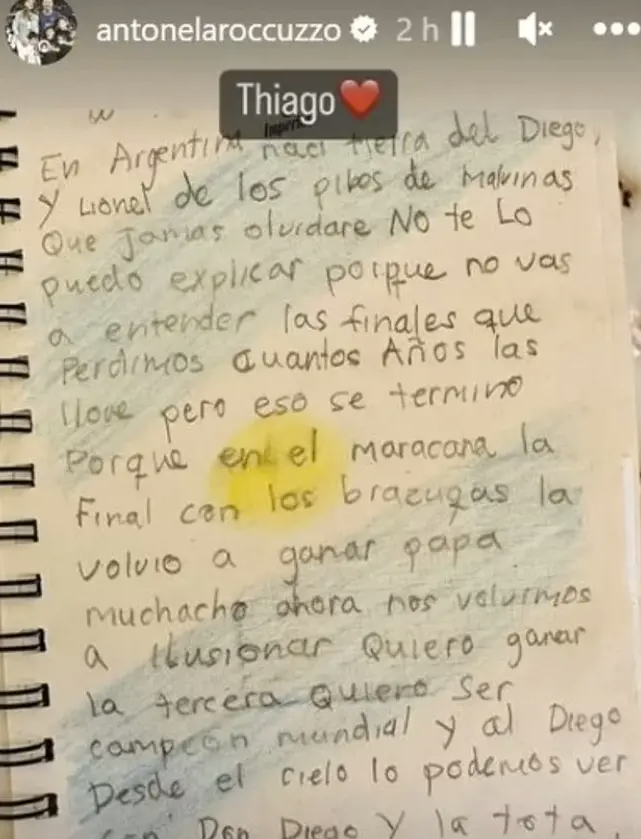 antonelaroccuzzo 2 h
Thiago❤️
En Argentina naci tierra del Diego,
Y Lionel de los pibes de Malvinas
Que jamas olvidare No te Lo
puedo explicar porque no vas
a entender las finales que
Perdimos cuantos Años las
llore pero eso se termino
Porque en el maracana la
Final con los brazugas la
volvio a ganar papa
muchacho ahora nos volvimos
a Ilusionar Quiero ganar
la tercera Quiero Ser
campeon mundial y al Diego
Desde el cielo lo podemos ver
con Don Diego Y la tota